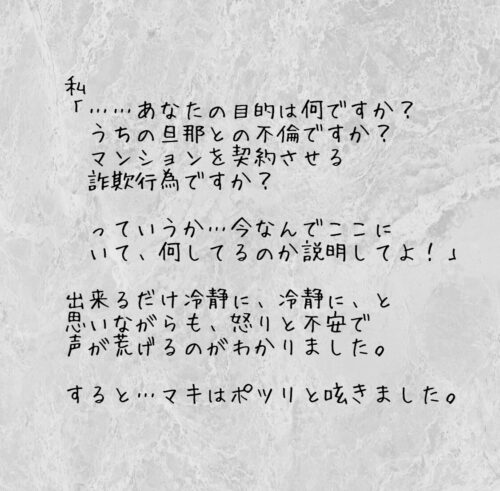 私
「……あなたの目的は何ですか？
うちの旦那との不倫ですか？
マンションを契約させる
詐欺行為ですか？
っていうか…今なんでここに
いて、何してるのか説明してよ！」
出来るだけ冷静に、冷静に、と
思いながらも、怒りと不安で
声が荒げるのがわかりました。
すると…マキはポツリと呟きました。